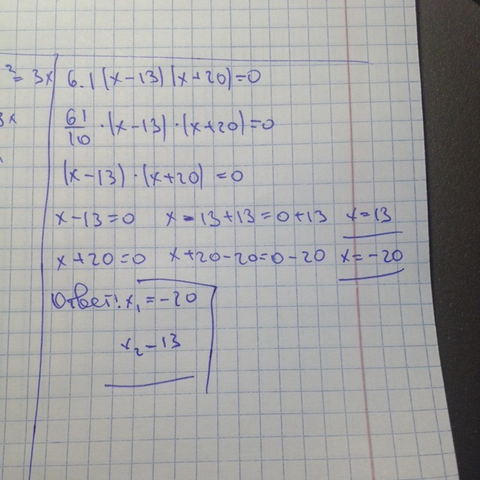 ² = 3x
3x
6.1(x-13)(x+20)=0
61/10 · (x-13) · (x+20)=0
(x-13) · (x+20) =0
x-13=0 x-13+13=0+13 x=13
x+20=0 x+20-20=0-20 x=-20
Ответ: x₁=-20
x₂-13